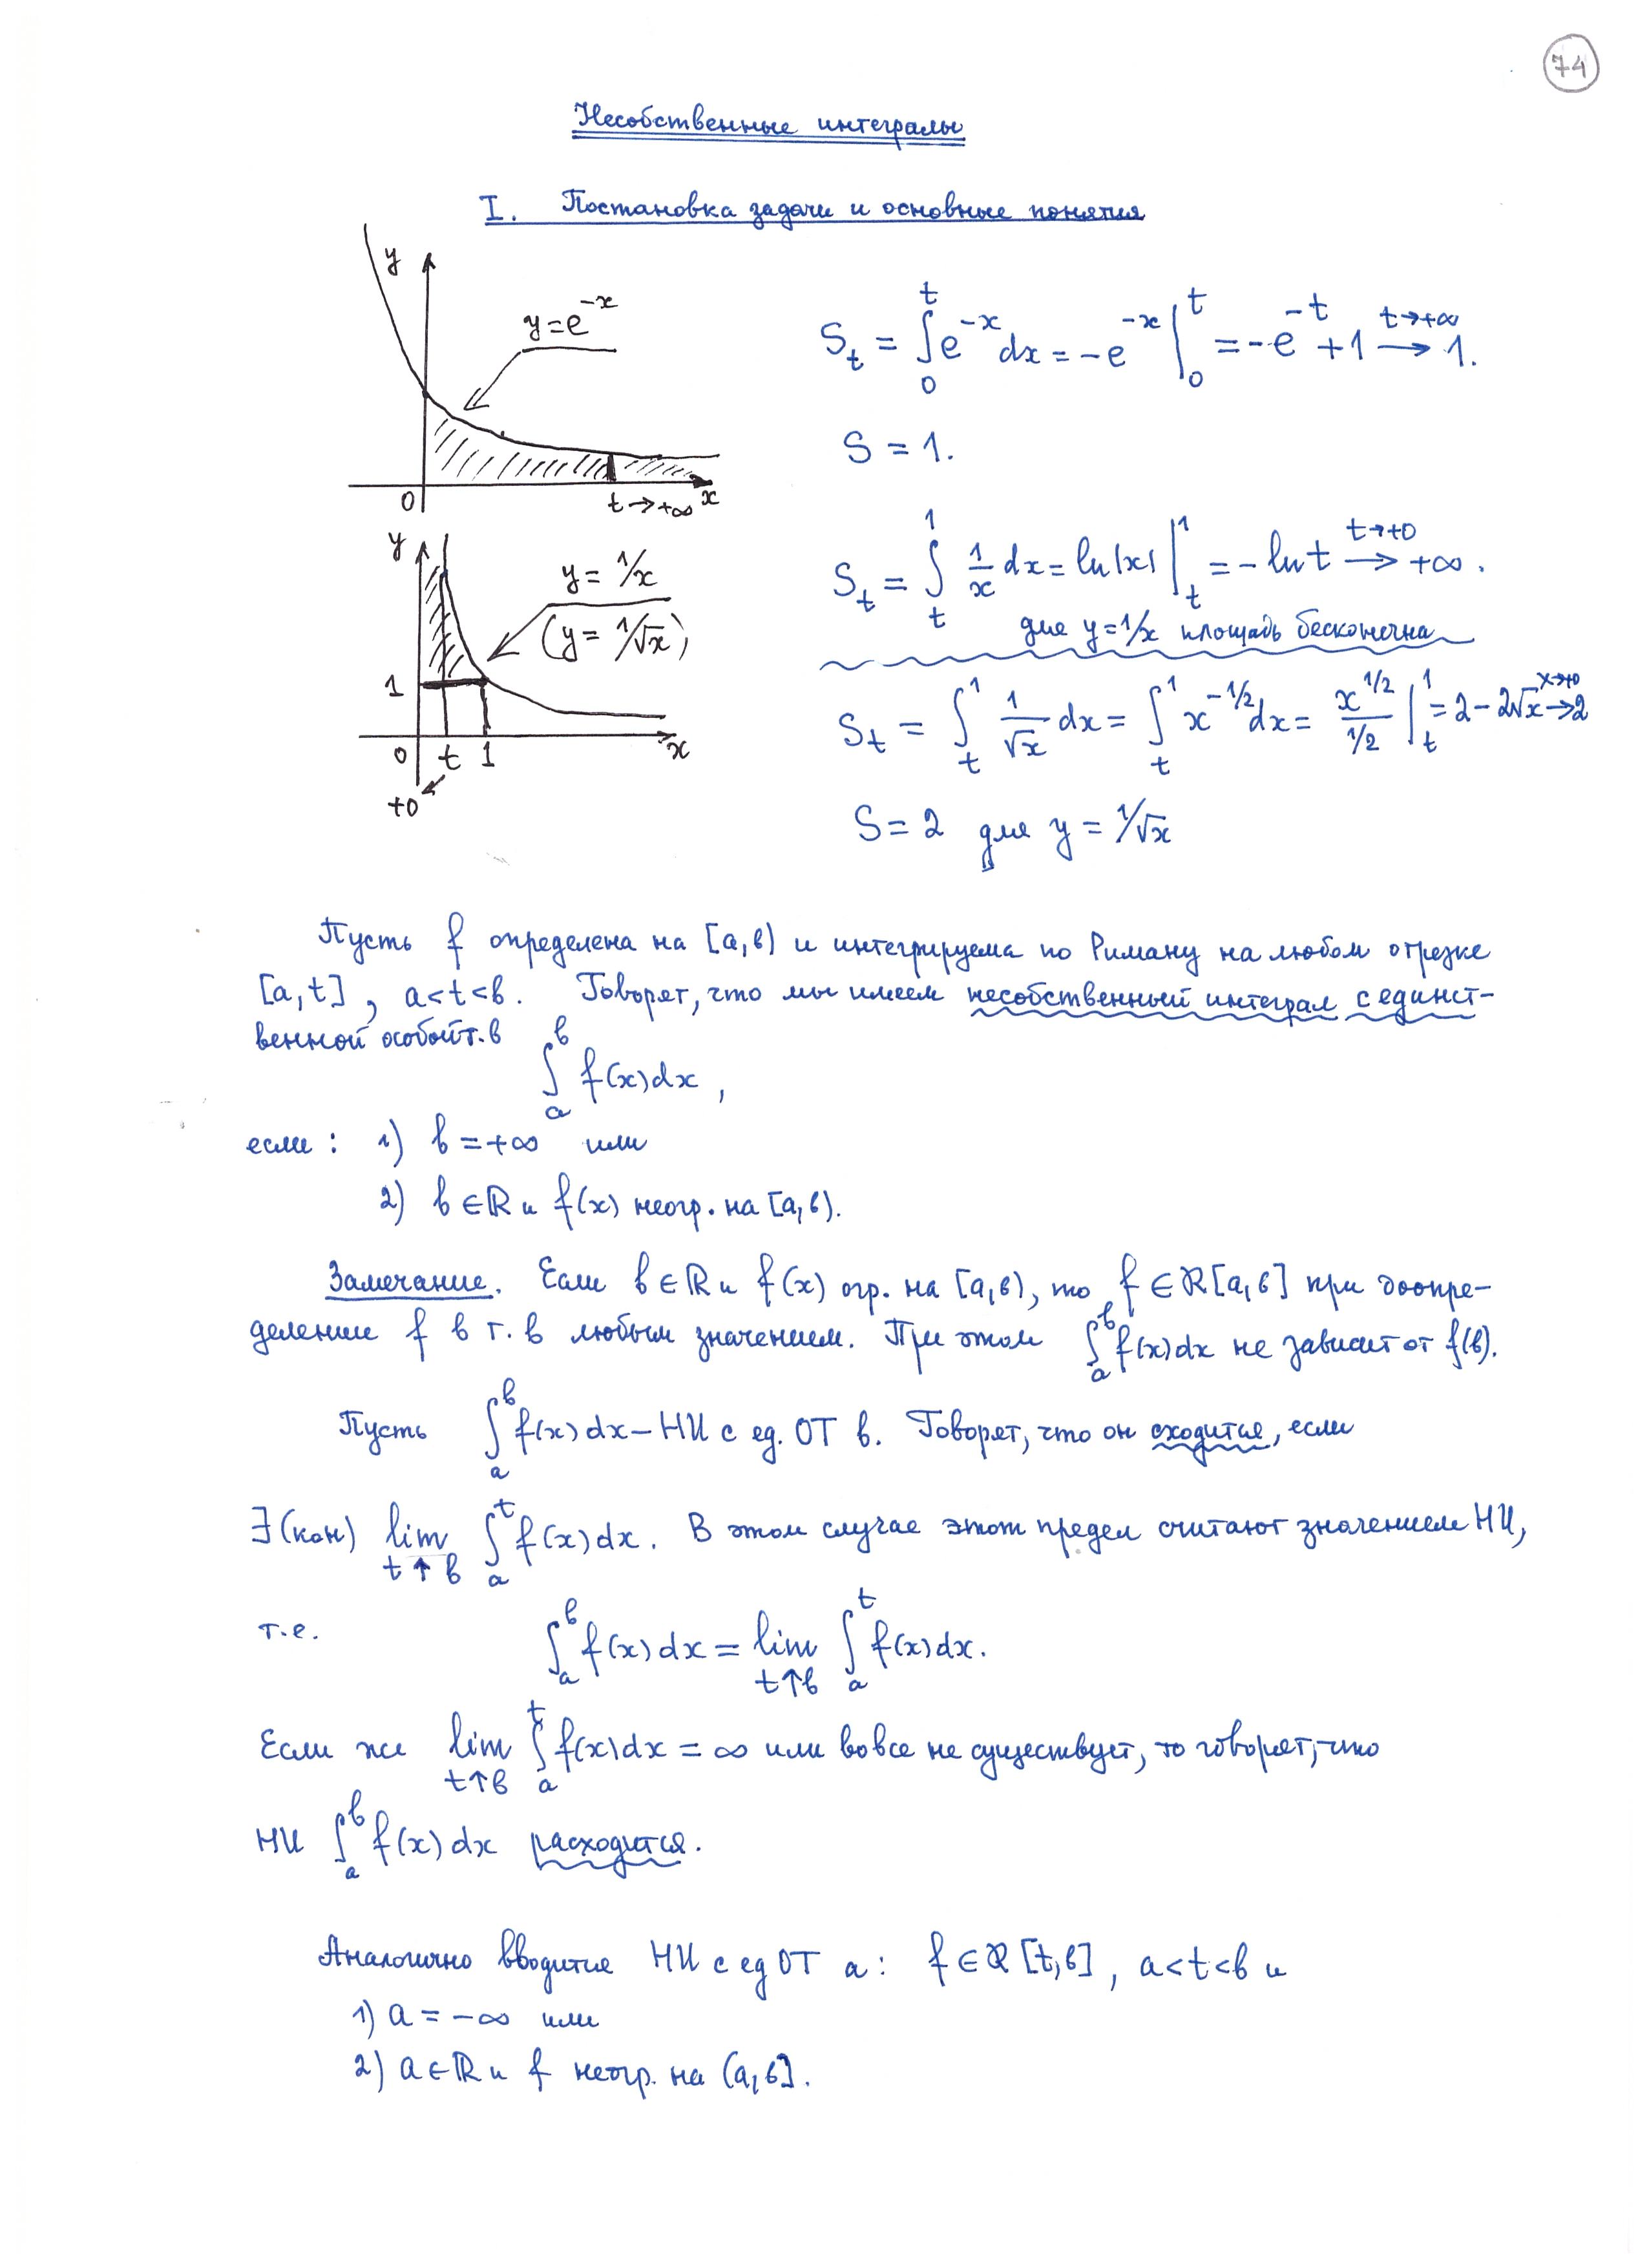 74
Несобственные интегралы
I. Постановка задачи и основные понятия
y
y=e^{-x}
0
t→+∞ x
S_t = ∫_0^t e^{-x}dx = -e^{-x}|_0^t = -e^{-t}+1 \xrightarrow{t→+∞} 1.
S = 1.
y
y = 1/x
(y = 1/√x)
1
0 t 1 x
+0
S_t = ∫_t^1 \frac{1}{x} dx = ln|x| |_t^1 = - ln t \xrightarrow{t→+0} +∞.
для y=1/x площадь бесконечна
S_t = ∫_t^1 \frac{1}{√x} dx = ∫_t^1 x^{-1/2}dx = \frac{x^{1/2}}{1/2} |_t^1 = 2-2√x \xrightarrow{x→+0} 2
S = 2 для y = 1/√x
Пусть f определена на [a,b) и интегрируема по Риману на любом отрезке
[a,t], a<t<b. Говорят, что мы имеем несобственный интеграл с единст-
венной особой т. b
∫_a^b f(x)dx,
если: 1) b=+∞ или
2) b∈ℝ и f(x) неогр. на [a,b).
Замечание. Если b∈ℝ и f(x) огр. на [a,b), то f∈R[a,b] при доопре-
делении f в т. b любым значением. При этом ∫_a^b f(x)dx не зависит от f(b).
Пусть ∫_a^b f(x)dx – НИ с ед. ОТ b. Говорят, что он сходится, если
∃(кон) lim_{t↑b} ∫_a^t f(x)dx. В этом случае этот предел считают значением НИ,
т.е. ∫_a^b f(x)dx = lim_{t↑b} ∫_a^t f(x)dx.
Если же lim_{t↑b} ∫_a^t f(x)dx = ∞ или вовсе не существует, то говорят, что
НИ ∫_a^b f(x)dx расходится.
Аналогично вводится НИ с ед ОТ a: f∈R[t,b], a<t<b и
1) a = -∞ или
2) a∈ℝ и f неогр. на (a,b].